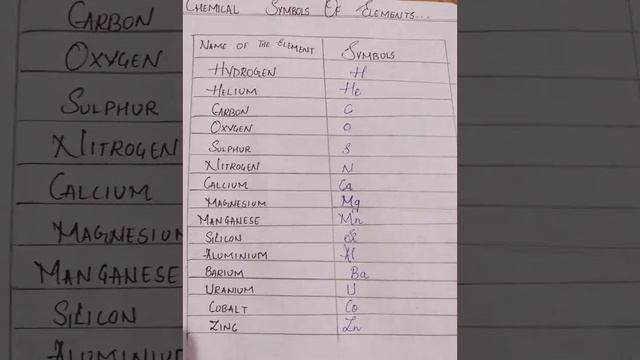 CHEMICAL SYMBOLS OF ELEMENTS...
NAME OF THE ELEMENT SYMBOLS
HYDROGEN H
HELIUM He
CARBON C
OXYGEN O
SULPHUR S
NITROGEN N
CALCIUM Ca
MAGNESIUM Mg
MANGANESE Mn
SILICON Si
ALUMINIUM Al
BARIUM Ba
URANIUM U
COBALT Co
ZINC Zn
CARBON
OXYGEN
SULPHUR
NITROGEN
CALCIUM
MAGNESIUM
MANGANESE
SILICON
ALUMINIUM